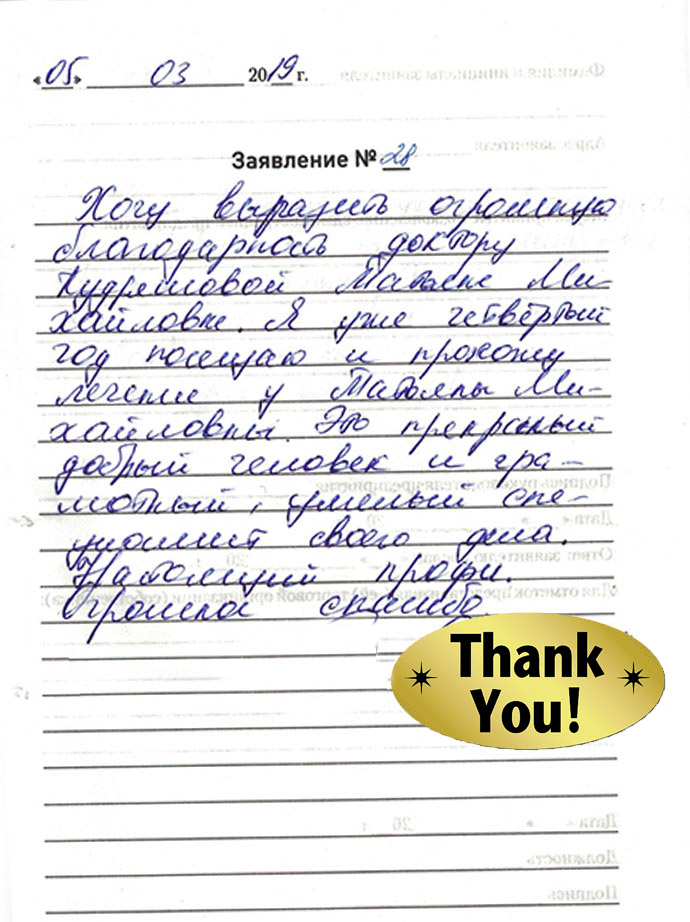 «05» 03 2019 г.
Заявление № 28
Хочу выразить огромную
благодарность доктору
Кудряшовой Татьяне Ми-
хайловне. Я уже четвёртый
год посещаю и прохожу
лечение у Татьяны Ми-
хайловны. Это прекрасный
добрый человек и гра-
мотный, умелый спе-
циалист своего дела.
Настоящий профи.
Огромное спасибо.
Thank
You!